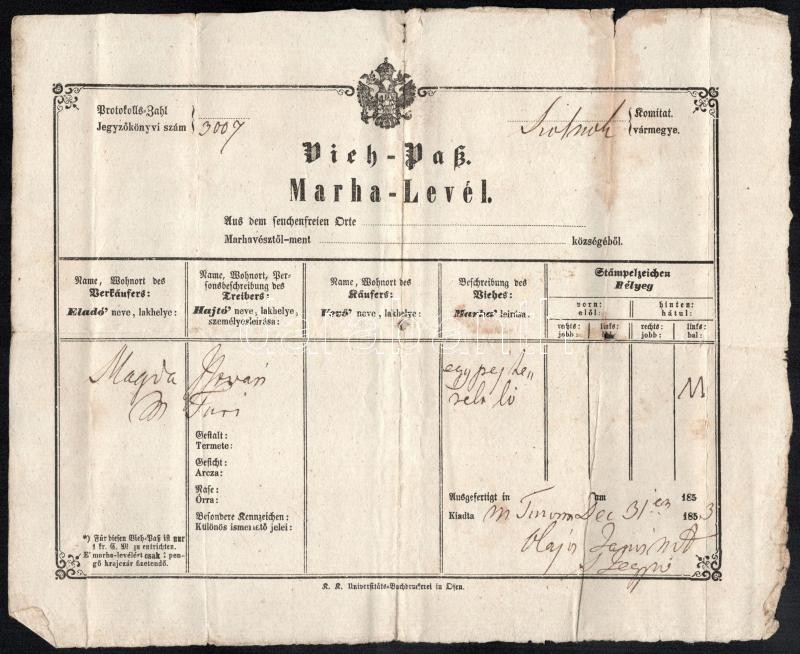 Protokolls-Zahl
Jegyzőkönyvi szám 3007
Szolnok
Komitat.
vármegye.
Vieh-Paß.
Marha-Levél.
Aus dem seuchenfreien Orte
Marhavésztől-ment községéből.
Name, Wohnort des
Verkäufers:
Eladó' neve, lakhelye:
Name, Wohnort, Per-
sonsbeschreibung des
Treibers:
Hajtó' neve, lakhelye,
személyesleirása:
Name, Wohnort des
Käufers:
Vevő' neve, lakhelye:
Beschreibung des
Viehes:
Marha' leirása:
Stämpelzeichen
Bélyeg
vorn:
elöl:
hinten:
hátul:
rechts:
jobb:
links:
bal:
rechts:
jobb:
links:
bal:
Magda István
M Turi
egy pej he„
relt ló
M
Gestalt:
Termete:
Gesicht:
Arcza:
Nase:
Órra:
Besondere Kennzeichen:
Különös ismertető jelei:
Ausgefertigt in am 185
Kiadta M Turon Dec 31 én 1853
Olajos
*) Für diesen Vieh-Paß ist nur
1 kr. C. M. zu entrichten.
E' marha-levélért csak 1 pen-
gő krajczár fizetendő.
K. K. Universitäts-Buchdruckerei in Ofen.